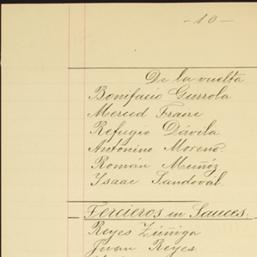 -10-
De la vuelta
Bonifacio Gurrola
Merced Fraire
Refugio Dávila
Antonino Moreno
Román Muñoz
Isaac Sandoval
Tercieros in Sauces.
Reyes Zúñiga
Juan Reyes